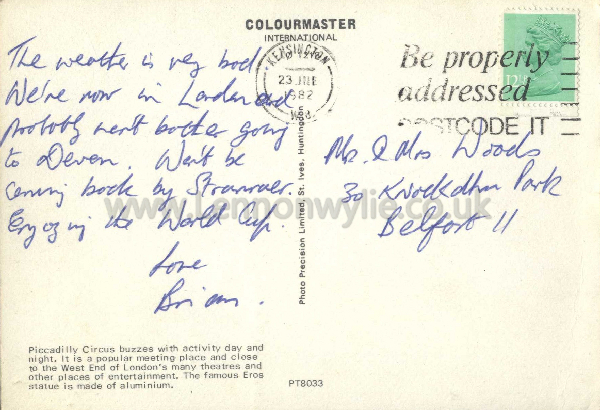 COLOURMASTER
INTERNATIONAL
The weather is very bad
We're now in London and
probably won't bother going
to Devon. Won't be
coming back by Stranraer.
Enjoying the World Cup.
Love
Brian.
KENSINGTON
23 JNE
1982
W.8.
Be properly
addressed
POSTCODE IT
12½P
Mr. & Mrs Woods
30 Knockdhu Park
Belfast 11
Photo Precision Limited, St. Ives, Huntingdon
www.Lennonwylie.co.uk
Piccadilly Circus buzzes with activity day and
night. It is a popular meeting place and close
to the West End of London's many theatres and
other places of entertainment. The famous Eros
statue is made of aluminium.
PT8033